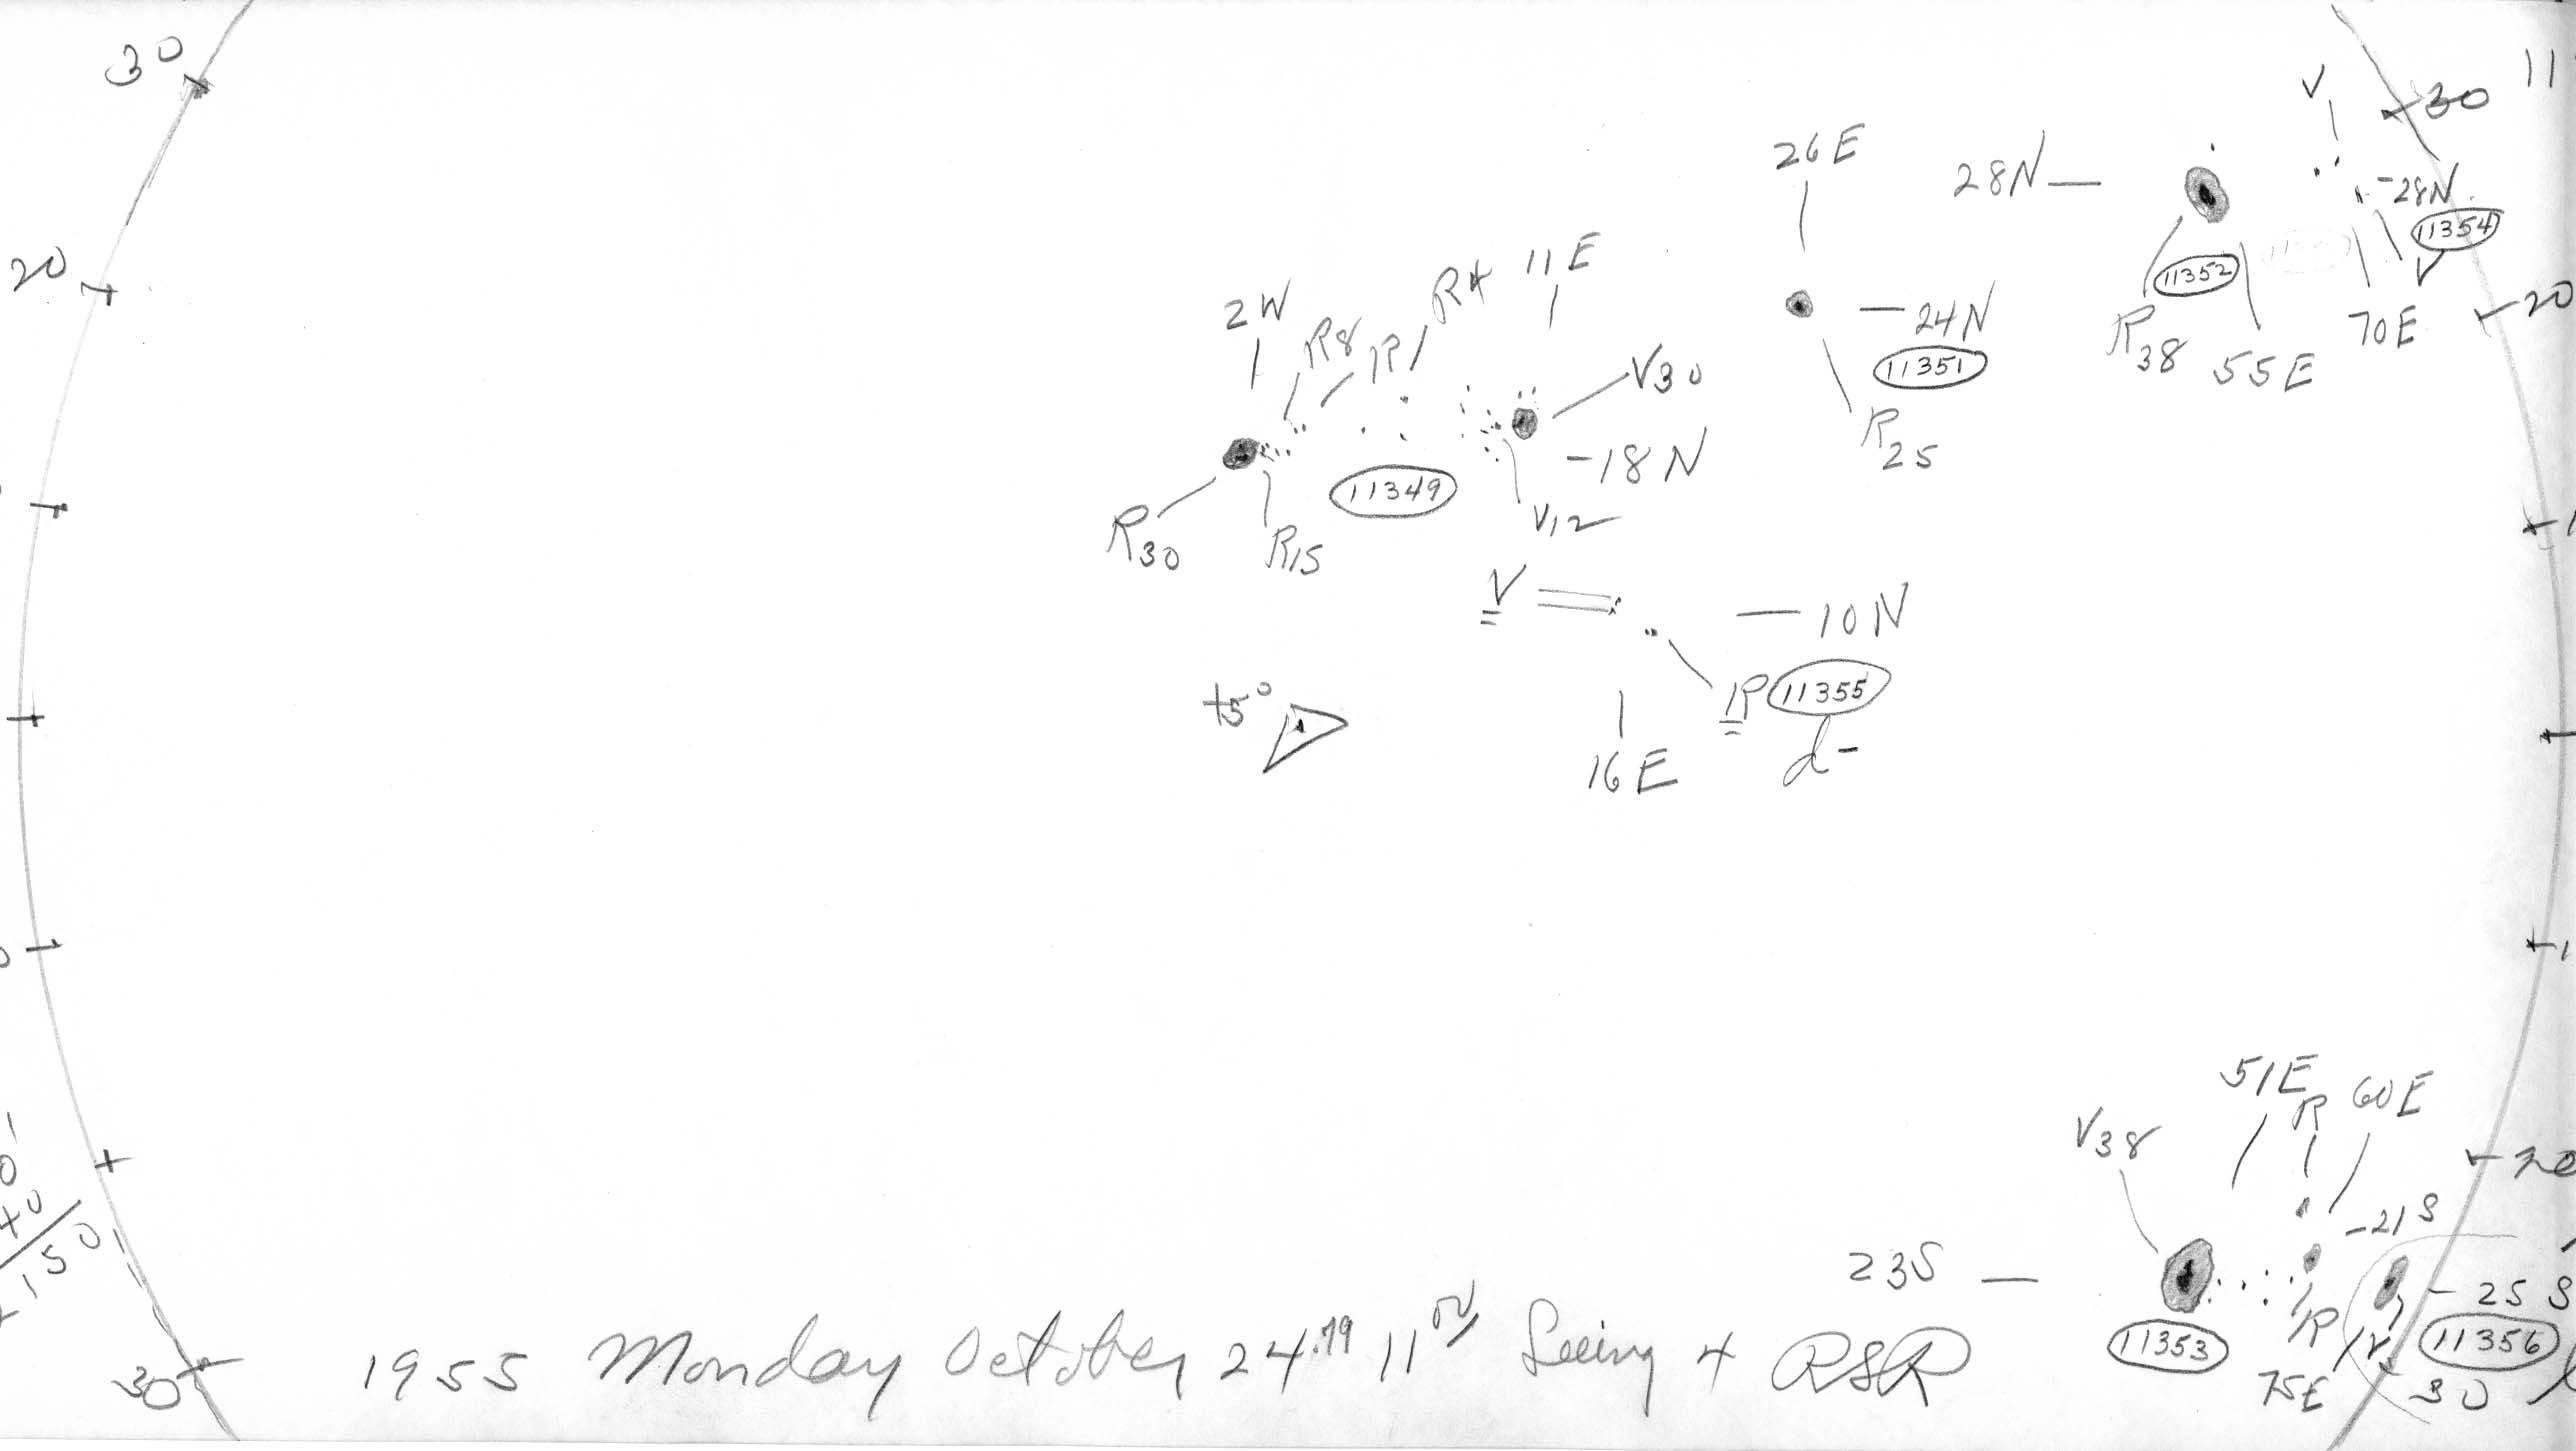 30
V
30
11
26E
28N
-28N
11354
20
2W
R8
R4
11E
11352
V
20
R
-24N
R38
55E
70E
11351
V30
R25
-18N
11349
R30
R15
V12
V
10N
+5°
R
11355
16E
d-
51E
R
60E
V38
20
40
150
-21S
23S
-25S
11353
R
V
11356
75E
30
30
1955 Monday October 24.79 11 Seeing 4 RSR